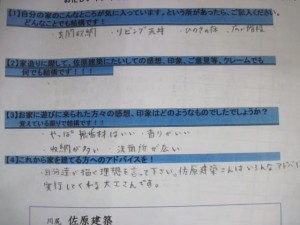 【1】自分の家のこんなところが気に入っています。という所があったら、ご記入ください。
どんなことでも結構です!!
・玄関収納 ・リビング天井 ・ひのきの
【2】家造りに際して、佐原建築にたいしての感想、印象、ご意見等、クレームでも
何でも結構です!!!
【3】お家に遊びに来られた方々の感想、印象はどのようなものでしたでしょうか?
覚えている限りで結構です!!
・やっぱ無垢材はいい ・香りがいい
収納が多い ・洗面所が広い
【4】これから家を建てる方へのアドバイスを!
・自分達で描く理想を言って下さい。佐原建築さんはいろんな
実行してくれる大工さんです。
佐原建築